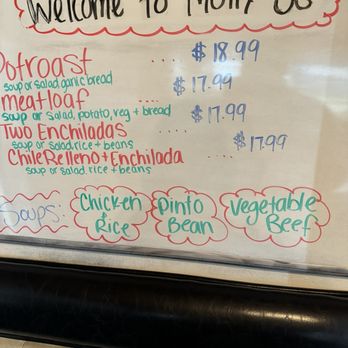 Welcome To Molly Bs
Potroast .... $18.99
soup or salad, garlic bread
meatloaf .... $17.99
soup or salad, potato, veg + bread
Two Enchiladas .... $17.99
soup or salad rice + beans
Chile Relleno + Enchilada .... $17.99
soup or salad. rice + beans
Soups: Chicken & Rice Pinto Bean Vegetable Beef